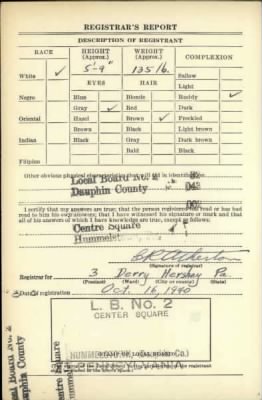 REGISTRAR'S REPORT
DESCRIPTION OF REGISTRANT
RACE HEIGHT (Approx.) WEIGHT (Approx.) COMPLEXION
5'-9" 135 lb.
White ✓ EYES HAIR Sallow
Light
Negro Blue Blonde Ruddy ✓
Gray ✓ Red Dark
Oriental Hazel Brown ✓ Freckled
Brown Black Light brown
Indian Black Gray Dark brown
Bald Black
Filipino
Other obvious physical characteristics that will aid in identification
Local Board No. 2
Dauphin County 043
I certify that my answers are true; that the person registered has read or has had
read to him his own answers; that I have witnessed his signature or mark and that
all of his answers of which I have knowledge are true, except as follows:
Centre Square
(Signature of registrar)
Registrar for 3 Derry Hershey Pa.
(Precinct) (Ward) (City or county) (State)
Date of registration Oct. 16, 1940
L. B. No. 2
CENTER SQUARE
PENNSYLVANIA
(STAMP OF LOCAL BOARD)
Local Board No. 2
Dauphin County
Centre Square